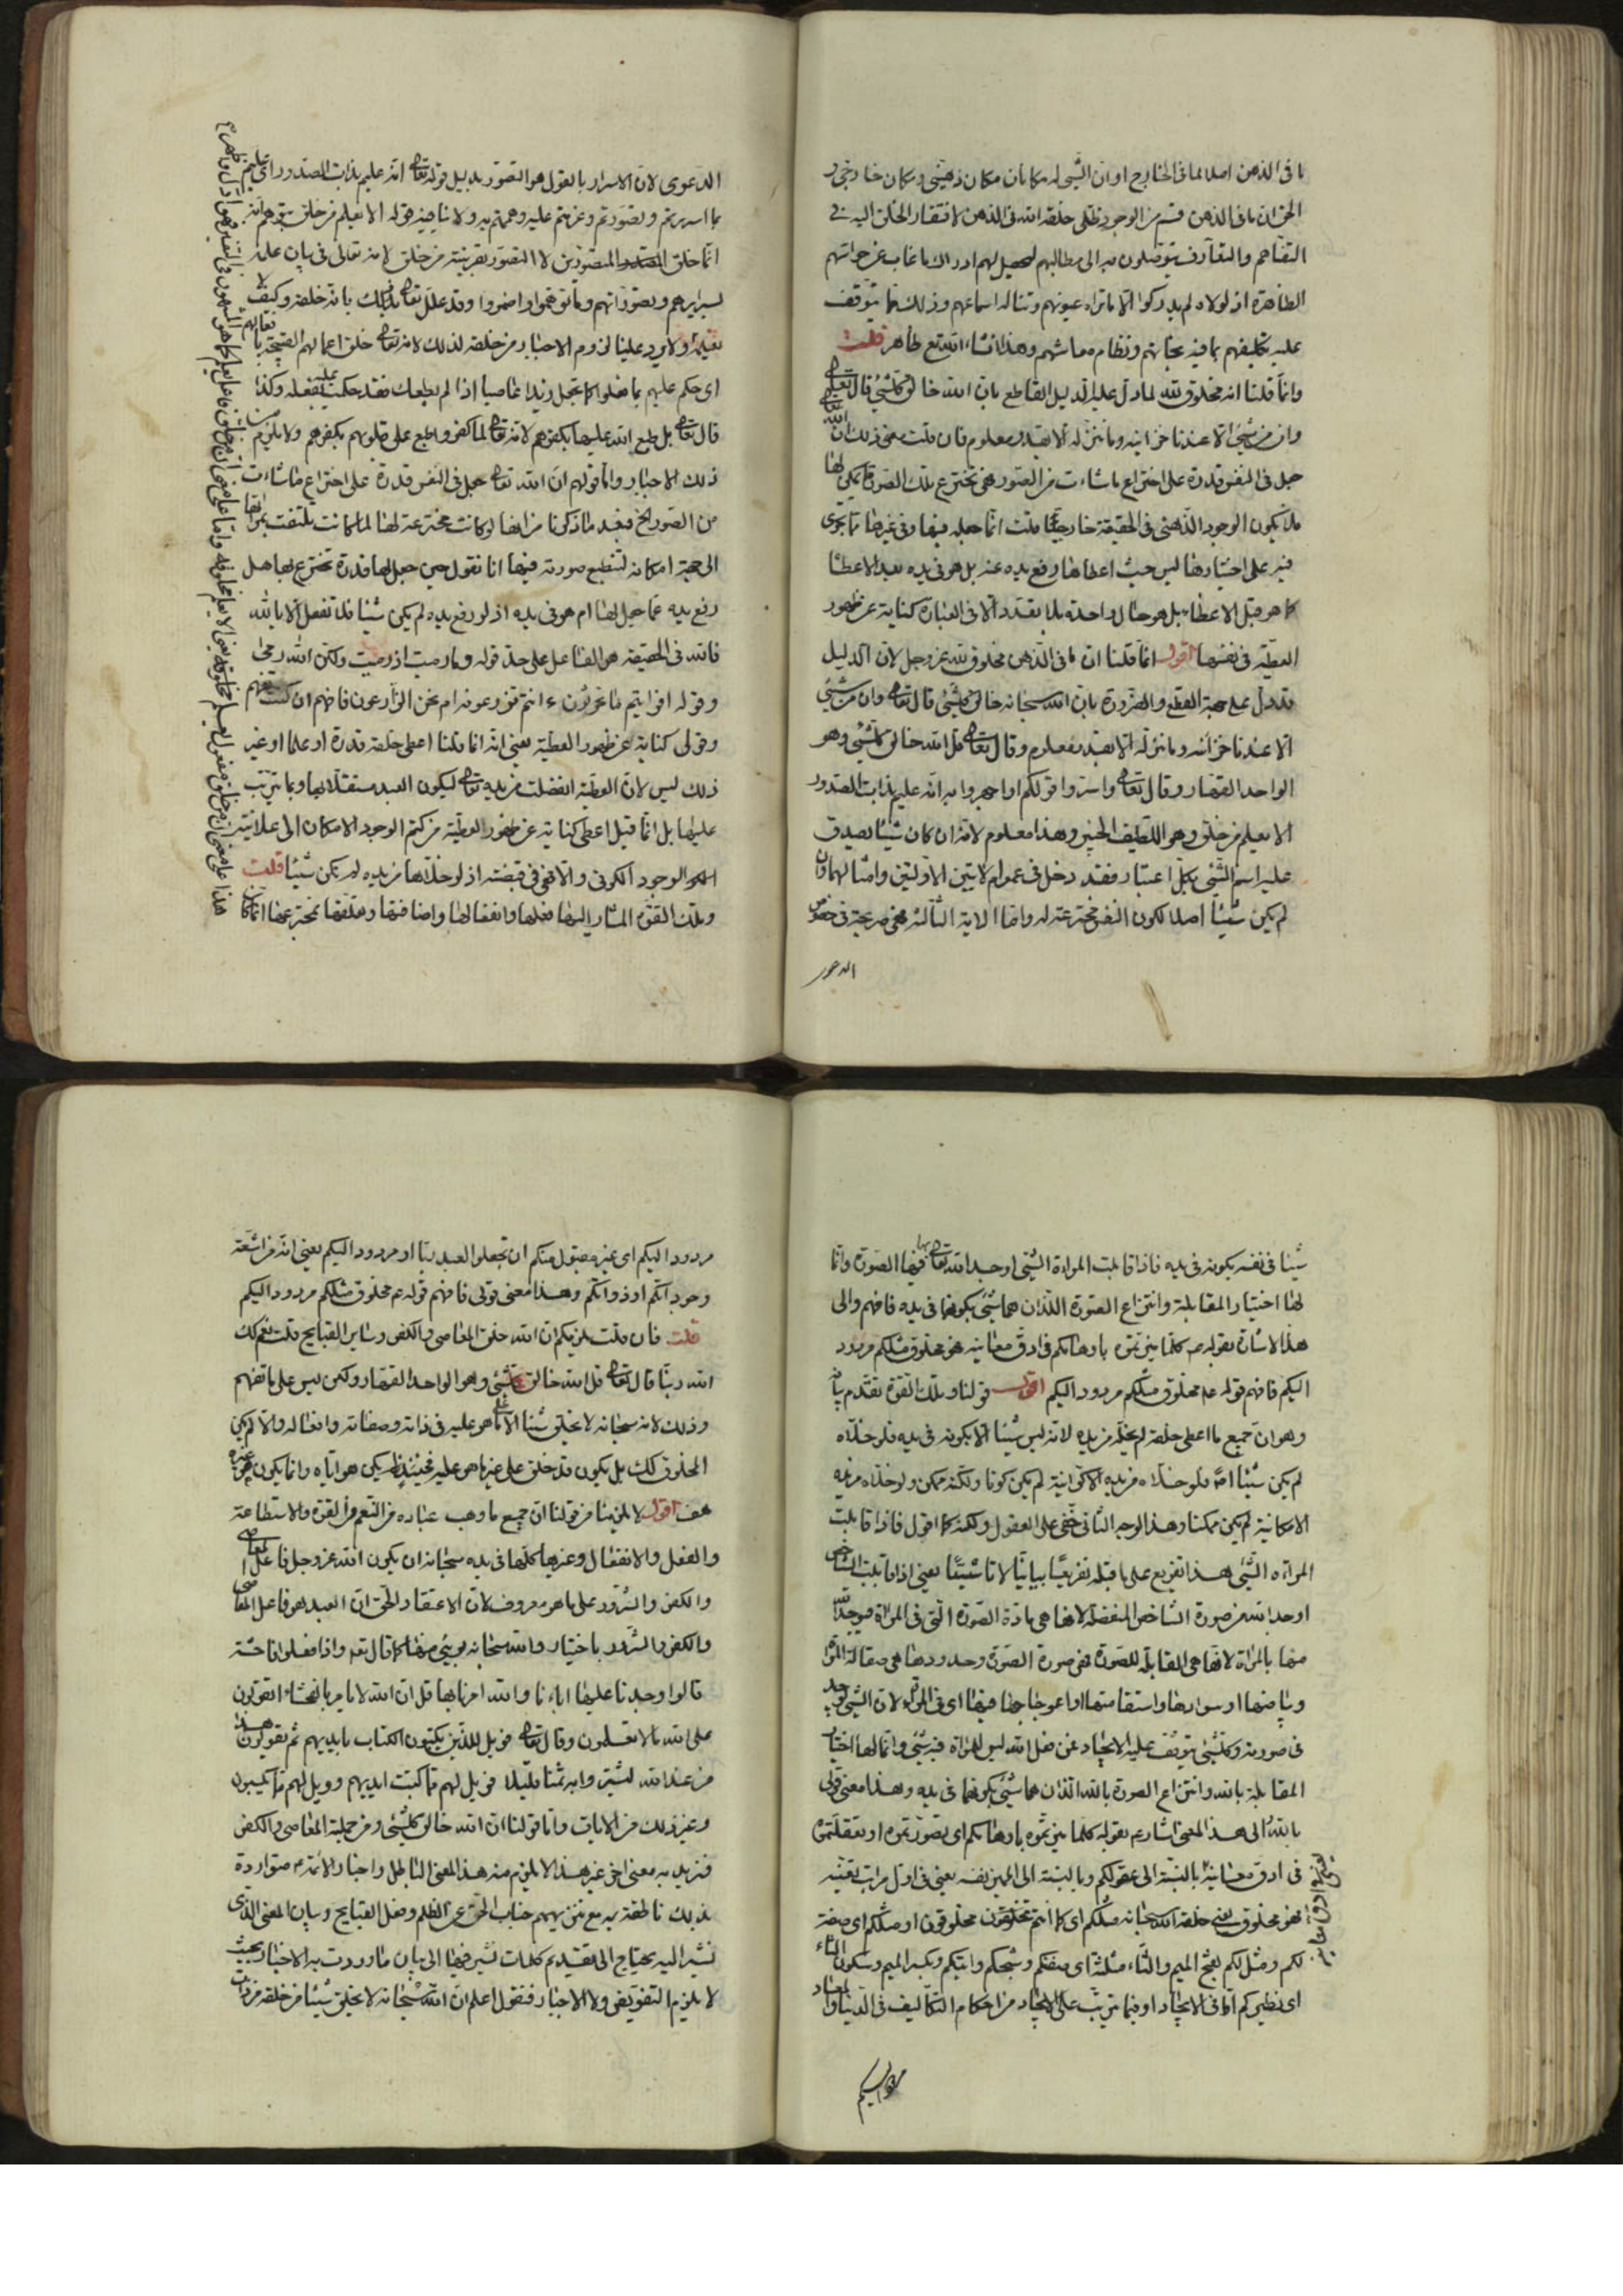 ما فى الذهن اصلا لما فى الخارج او ان الشئ له مكانان مكان ذهنى ومكان خارجى
الحق ان ما فى الذهن قسم من الوجود ظلى خلقه الله فى الذهن لافتقار الخلق اليه فى
التفاهم والتعارف يتوصلون به الى مطالبهم ليحصل لهم ادراك ما غاب عن حواسهم
الظاهرة اذ لولاه لم يدركوا الا ما تراه عيونهم وتناله اسماعهم وذلك مما يتوقف
عليه تكليفهم بما فيه نجاتهم ونظام معاشهم وهذا ظاهر قلت
وانما قلنا انه مخلوق لله لما دل عليه الدليل القاطع بان الله خالق كل شئ قال تعالى
وان من شئ الا عندنا خزائنه وما ننزله الا بقدر معلوم فان قلت معنى ذلك ان الله
جعل فى النفس قدرة على اختراع ما شاءت من الصور فهى تخترع تلك الصور
فلا يكون الوجود الذهنى فى الحقيقة خارجيا قلت انما جعله فيها وفى غيرها مما يجرى
فيه على اختيارها ليس حيث اعطاها رفع يده عنه بل هو فى يده بعد الاعطاء
كما هو قبل الاعطاء بل هو حال واحدة بلا تعدد الا فى العبارة كناية عن ظهور
العطية فى نفسها اقول انما قلنا ان ما فى الذهن مخلوق لله عز وجل لان الدليل
قد دل على جهة القطع والضرورة بان الله سبحانه خالق كل شئ قال تعالى وان من شئ
الا عندنا خزائنه وما ننزله الا بقدر معلوم وقال تعالى قل الله خالق كل شئ وهو
الواحد القهار وقال تعالى واسروا قولكم او اجهروا به انه عليم بذات الصدور
الا يعلم من خلق وهو اللطيف الخبير وهذا معلوم لانه ان كان شيئا يصدق
عليه اسم الشئ بكل اعتبار فقد دخل فى عموم الايتين الاولتين وامثالهما وان
لم يكن شيئا اصلا لكون النفس مخترعة له واما الاية الثالثة فهى صريحة فى خصوص
الدعوى
الدعوى لان الاسرار بالقول هو التصور بدليل قوله تعالى انه عليم بذات الصدور اى عليم
بما اسررتم وتصورتم وعزمتم عليه وهممتم به ولا ينافيه قوله الا يعلم من خلق
انما خلق المتصورين لا التصور بقرينة من خلق لانه تعالى فى بيان علمه
بسرايرهم وتصوراتهم وما توهموا واضمروا وقد علل تعالى ذلك بانه خلقه وكيف لا
يعلمه ولا يرد علينا لزوم الاجبار من خلقه لذلك لانه تعالى خلق اعمالهم القبيحة بها
اى حكم عليهم بما فعلوا كما تجعل زيدا عاصيا اذا لم يطعك فقد حكمت عليه بفعله وكذا
قال تعالى بل طبع الله عليها بكفرهم لانه تعالى لما كفروا طبع على قلوبهم بكفرهم ولا يلزم من
ذلك الاجبار واما قولهم ان الله تعالى جعل فى النفس قدرة على اختراع ما شاءت
من الصور الخ فبعد ما ذكرنا من انها لو كانت مخترعة لها لما كانت تلتفت بمرآتها
الى جهة امكانه لتنطبع صورته فيها انا نقول حين جعل لها قدرة تخترع بها هل
رفع يده عما جعل لها ام هو فى يده اذ لو رفع يده لم يكن شيئا فلا تفعل الا بالله
فالله فى الحقيقة هو الفاعل على حد قوله وما رميت اذ رميت ولكن الله رمى
وقوله افرايتم ما تحرثون ءانتم تزرعونه ام نحن الزارعون فافهم ان كنت تفهم
وقولى كناية عن ظهور العطية يعنى انه انما قلنا اعطى خلقه قدرة او علما او غير
ذلك ليس لان العطية انفصلت من يده تعالى ليكون العبد مستقلا بها وبما يترتب
عليها بل انما قيل اعطى كناية عن ظهور العطية من كتم الوجود الامكان الى علانية
الوجود الكونى والا فهى فى قبضته اذ لو خلاها من يده لم تكن شيئا قلت
وتلك القوة المشار اليها فعلها وانفعالها وما فيها وما تخترع عنها انما كان
شيئا فى نفسه بكونه فى يده فاذا قابلت المراة الشئ اوجد الله تعالى فيها الصورة وانما
لها اختيار المقابلة وانتزاع الصورة اللذان هما شئ بكونهما فى يده فافهم والى
هذا الاشارة بقوله ع كلما ميزتموه باوهامكم فى ادق معانيه فهو مخلوق مثلكم مردود
اليكم فافهم قوله ع مخلوق مثلكم مردود اليكم اقول قولنا وتلك القوة تقدم بيانه
وهو ان جميع ما اعطى خلقه لم يخله من يده لانه ليس شيئا الا بكونه فى يده فلو خلاه
لم يكن شيئا فلو خلاه من يده الاكوانية لم يكن كونا ولكنه ممكن ولو خلاه من يده
الامكانية لم يكن ممكنا وهذا الوجه الثانى خفى على العقول ولكنه كما اقول فاذا قابلت
المراة الشئ هذا تفريع على ما قبله تفريعا بيانيا لا تاسيسا يعنى اذا قابلت الشاخص
اوجد الله من صورة الشاخص المنفصلة لانها هى مادة الصورة التى فى المراة
منها بالمراة لانها هى المقابلة للصورة فهى صورة الصورة وحدودها هى صقالة المراة
وبياضها او سوادها واستقامتها او اعوجاجها فيها اى فى المراة لان الشئ
فى صورته وكل شئ يتوقف عليه الايجاد عن فعل الله ليس للمراة فيه شئ وانما لها اختيار
المقابلة بالله وانتزاع الصورة بالله اللذان هما شئ بكونهما فى يده وهذا معنى قولى
بالله والى هذا المعنى اشار ع بقوله كلما ميزتموه باوهامكم اى تصورتموه او تعقلتموه
فى ادق معانيه بالنسبة الى عقولكم وبالنسبة الى المميز نفسه يعنى فى اول مراتب تعينه
فهو مخلوق يعنى خلقه الله سبحانه مثلكم اى كما انتم مخلوقون او مثلكم اى صفة
لكم ومثل لكم بفتح الميم والثاء مثلثة اى صفتكم وشبحكم وايتكم وبكسر الميم وسكون الثاء
اى نظيركم اما فى الايجاد او فيما يترتب على الايجاد من احكام التكاليف فى الدنيا والمعاد
مردود اليكم
مردود اليكم اى غير مقبول منكم ان تجعلوا العبد ربا او مردود اليكم يعنى انه من اشعة
وجوداتكم او ذواتكم وهذا معنى قولى فافهم قوله ع مخلوق مثلكم مردود اليكم
قلت فان قلت يلزمكم ان الله خلق المعاصى والكفر وساير القبايح قلت نعم كذلك
الله ربنا قال تعالى قل الله خالق كل شئ وهو الواحد القهار ولكن ليس على ما تفهم
وذلك لانه سبحانه لا يخلق شيئا الا على ما هو عليه فى ذاته وصفاته وافعاله والا لم يكن
المخلوق كذلك بل يكون قد خلق على غير ما هو عليه فحينئذ لم يكن هو اياه وانما يكون غيره
هف اقول لا يلزمنا من قولنا ان جميع ما وهب عباده من النعم من القوة والاستطاعة
والفعل والانفعال وغيرها كلها فى يده سبحانه ان يكون الله عز وجل فاعل المعاصى
والكفر والشرور على ما هو معروف لان الاعتقاد الحق ان العبد هو فاعل المعاصى
والكفر والشرور باختياره والله سبحانه برىء منها كما قال تع واذا فعلوا فاحشة
قالوا وجدنا عليها اباءنا والله امرنا بها قل ان الله لا يامر بالفحشاء اتقولون
على الله ما لا تعلمون وقال تعالى فويل للذين يكتبون الكتاب بايديهم ثم يقولون هذا
من عند الله ليشتروا به ثمنا قليلا فويل لهم مما كتبت ايديهم وويل لهم مما يكسبون
وغير ذلك من الايات واما قولنا ان الله خالق كل شئ ومن جملته المعاصى والكفر
فنريد به معنى اخر غير هذا لا يلزم منه هذا المعنى الباطل واخبار الائمة ع متواردة
بذلك ناطقة به مع تنزيههم جناب الحق عن الظلم وفعل القبايح وبيان المعنى الذى
نشير اليه يحتاج الى تقديم كلمات نشير فيها الى بيان ما وردت به الاخبار بحيث
لا يلزم التفويض ولا الاجبار فنقول اعلم ان الله سبحانه لا يخلق شيئا من خلقه من ذات